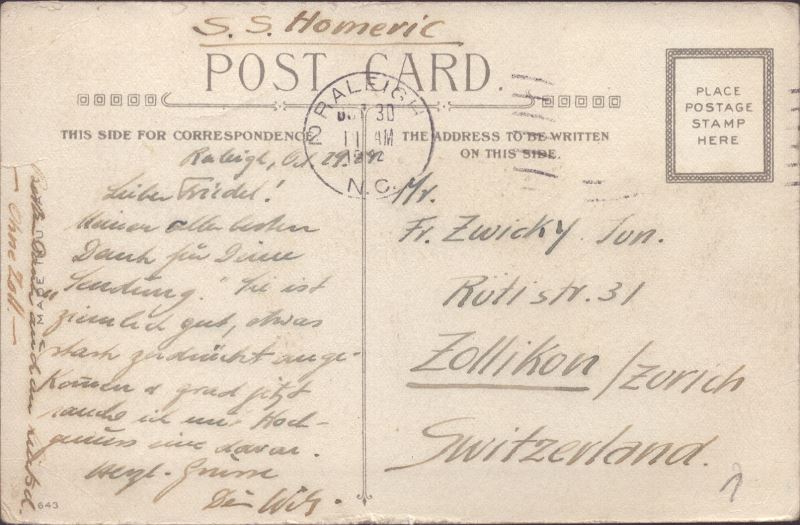 S.S. Homeric
POST CARD.
THIS SIDE FOR CORRESPONDENCE
THE ADDRESS TO BE WRITTEN
ON THIS SIDE.
PLACE
POSTAGE
STAMP
HERE
RALEIGH
30
11 AM
N.C.
Raleigh, Oct. 29.
Lieber Friedel!
Meinen allerbesten
Dank für Deine
Sendung. Sie ist
ziemlich gut, etwas
stark zerdrückt ange-
kommen & grad jetzt
rauche ich mit Hoch-
genuss eine davon.
Herzl. Grüsse
Dein
— Ohne Zoll. —
MADE IN U
643
Mr.
Fr. Zwicky Jun.
Rütistr. 31
Zollikon / Zürich
Switzerland.